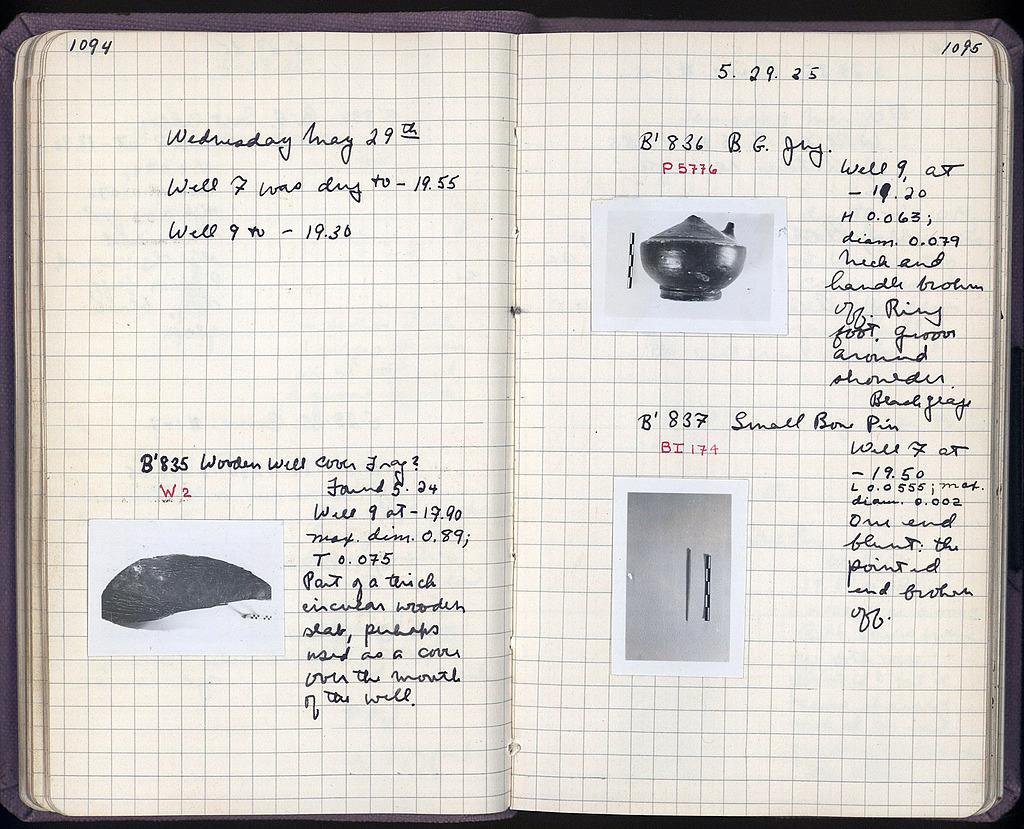 1094
Wednesday May 29th
Well 7 was dug to - 19.55
Well 9 to - 19.30
B'835 Wooden Well Cover Frag?
W 2
Found 5.24
Well 9 at - 17.90
max. dim. 0.89;
T 0.075
Part of a thick
circular wooden
slab, perhaps
used as a cover
over the mouth
of the well.
1095
5. 29. 35
B'836 B. G. Jug.
P 5776
Well 9, at
- 19.20
H 0.063;
diam. 0.079
Neck and
handle broken
off. Ring
foot. groove
around
shoulder.
Black glaze
B'837 Small Bone Pin
BI 174
Well 7 at
- 19.50
L 0.0555; max.
diam. 0.002
One end
blunt: the
pointed
end broken
off.